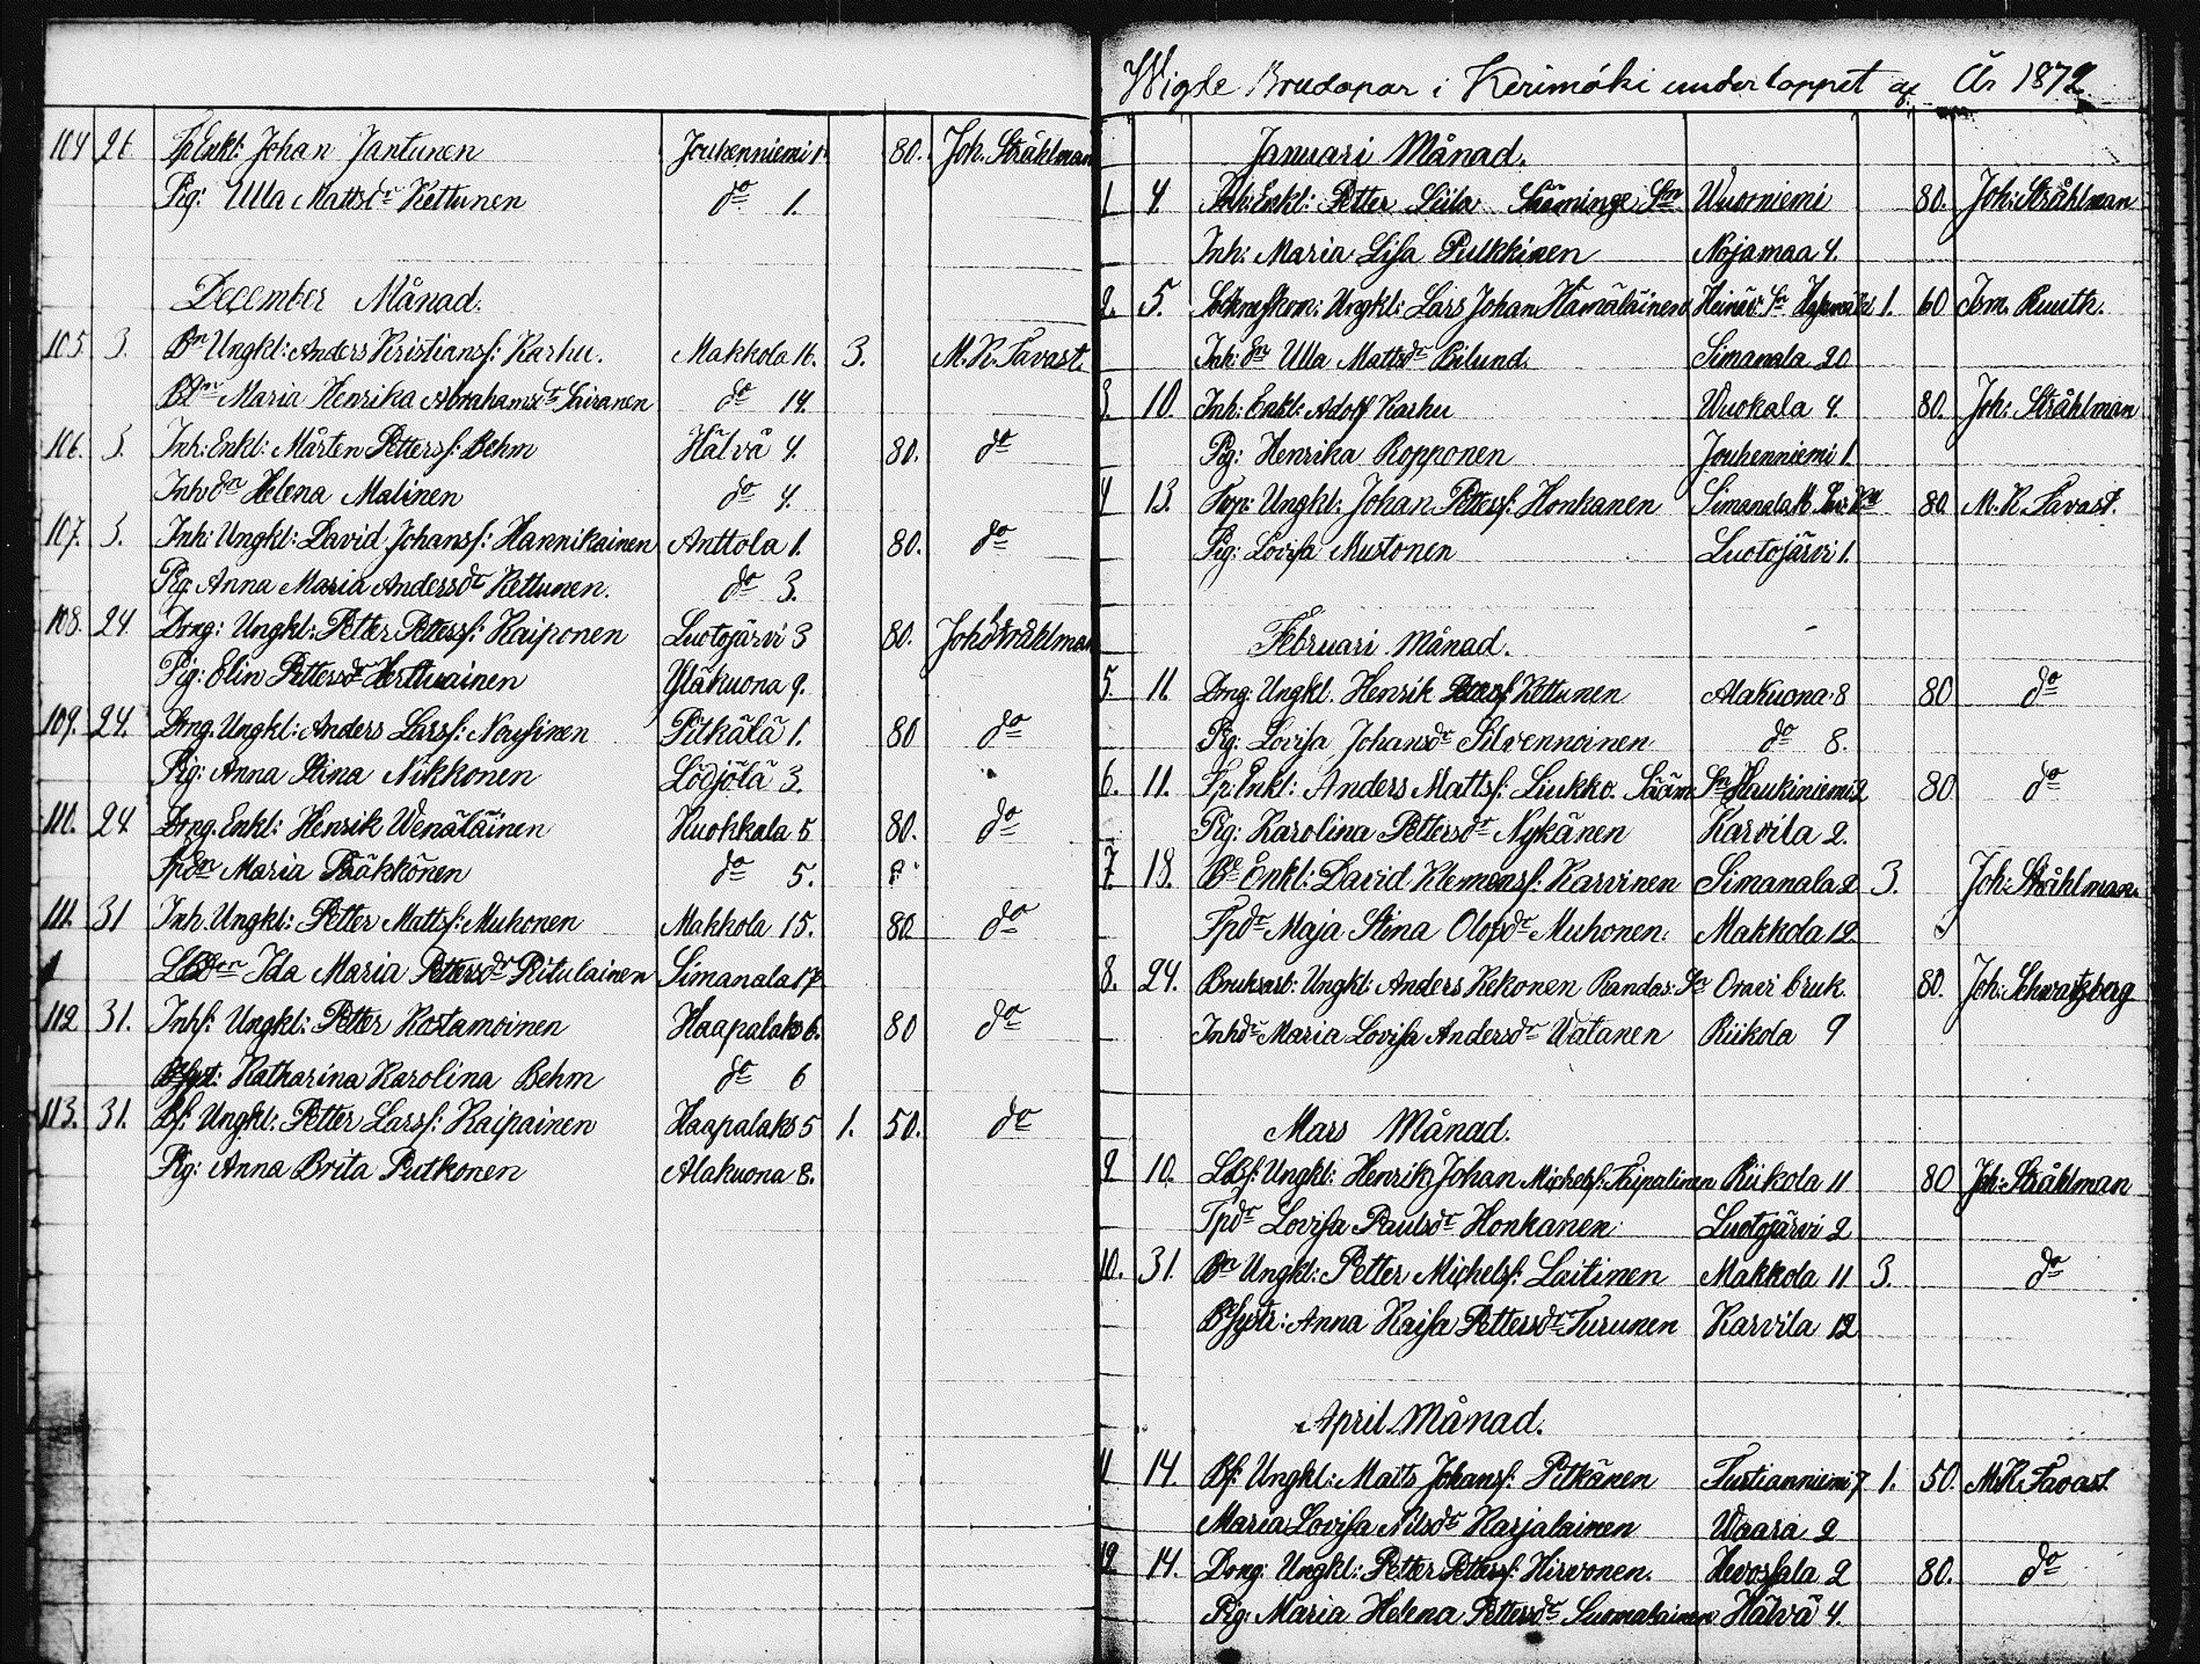 104 26. Sp Enkl: Johan Jantunen Jouhenniemi 1. 80. Joh. Stråhlman
Pig: Ulla Mattsdr Kettunen do 1.
December Månad.
105. 3. Bn Ungkl: Anders Kristiansf: Karhu. Makkola 16. 3. M. K. Tavast.
Maria Henrika Abrahamsdr Sairanen do 14.
106. 3. Inh: Enkl: Mårten Pettersf: Behm Hälvä 4. 80. do
Inhdn Helena Malinen do 4.
107. 3. Inh: Ungkl: David Johansf: Hannikainen Anttola 1. 80. do
Pig: Anna Maria Andersdr Kettunen. do 3.
108. 24. Dng: Ungkl: Petter Pettersf: Kaiponen Luotojärvi 3 80. Joh Stråhlman
Pig: Elin Pettersdr Herttuainen Yläkuona 9.
109. 24. Dng. Ungkl: Anders Larsf: Nousinen Pitkälä 1. 80 do
Pig: Anna Stina Nikkonen Lödjölä 3.
110. 24 Dng. Enkl: Henrik Wenäläinen Kuokkala 5 80. do
Maria Pääkkönen do 5.
111. 31 Inh. Ungkl: Petter Mattsf: Muhonen Makkola 15. 80 do
Ida Maria Pettersdr Ritulainen Simanala 17.
112 31. Inhf: Ungkl: Petter Kostamoinen Haapalaks 6. 80 do
Katharina Karolina Behm do 6
113. 31. Bf: Ungkl: Petter Larsf: Kaipainen Haapalaks 5 1. 50. do
Pig: Anna Brita Putkonen Alakuona 8.
Wigde Brudapar i Kerimäki under loppet af År 1872
Januari Månad.
1 4. Inh: Enkl: Petter Siila Sääminge Sn Wuorniemi 80. Joh: Stråhlman
Inh: Maria Lisa Pulkkinen Nojamaa 4.
2. 5. Ungkl: Lars Johan Hämäläinen Heinäv: Sn 1. 60 Ism. Ruuth.
Inh: Ulla Mattsdr Bilund Simanala 20
3. 10. Inh: Enkl: Adolf Karhu Wuokala 4. 80. Joh: Stråhlman
Pig: Henrika Ropponen Jouhenniemi 1.
4 13. Torp: Ungkl: Johan Pettersf: Honkanen Simanala 80 M. K. Tavast.
Pig: Lovisa Mustonen Luotojärvi 1.
Februari Månad.
5. 11. Dng: Ungkl. Henrik Pettersf: Kettunen Alakuona 8 80 do
Pig: Lovisa Johansdr Silvennoinen do 8.
6. 11. Sp: Enkl: Anders Mattsf: Liukko. Sääm Sn Haukiniemi 2 80 do
Pig: Karolina Pettersdr Nykänen Karvila 2.
7. 18. Be Enkl: David Klemensf: Karvinen Simanala 2 3. Joh: Stråhlman
Tpdr Maja Stina Olofsdr Muhonen. Makkola 12.
8. 24. Bruksarb: Ungkl: Anders Kekonen Randas: Sn Oravi bruk. 80. Joh: Schwartzberg
Inhdr Maria Lovisa Andersdr Watanen Riikola 9
Mars Månad.
9 10. LBf: Ungkl: Henrik Johan Michelsf: Ripalinen Riikola 11 80 Joh: Stråhlman
Tpdr Lovisa Paulsdr Honkanen Luotojärvi 2
10. 31. Bn Ungkl: Petter Michelsf: Laitinen Makkola 11 3. do
Bsystr: Anna Kaisa Pettersdr Turunen Karvila 12
April Månad.
11 14. Bf: Ungkl: Matts Johansf: Pitkänen Tustianniemi 7 1. 50. M K Tavast
Maria Lovisa Nilsdr Karjalainen Waara 2
12. 14. Dng: Ungkl: Petter Pettersf: Hirvonen. Hevossala 2 80. do
Pig: Maria Helena Pettersdr Suomalainen Hälvä 4.